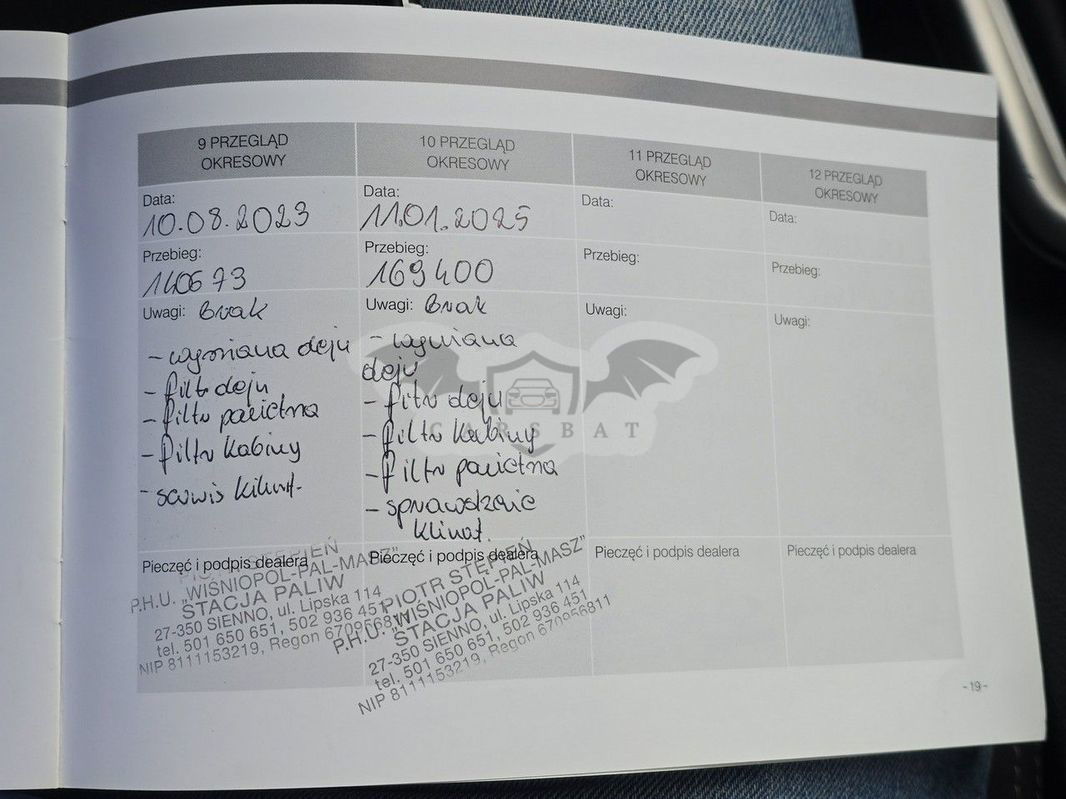 9 PRZEGLĄD
OKRESOWY
Data:
10.08.2023
Przebieg:
140673
Uwagi: Brak
- wymiana oleju
- filtr oleju
- filtr powietrza
- filtr kabiny
- serwis klimat.
Pieczęć i podpis dealera
P.H.U. „WIŚNIOPOL-PAL-MASZ”
STACJA PALIW
27-350 SIENNO, ul. Lipska 114
tel. 501 650 651, 502 936 451
NIP 8111153219, Regon 670956811
10 PRZEGLĄD
OKRESOWY
Data:
11.01.2025
Przebieg:
169400
Uwagi: Brak
- wymiana
oleju
- filtr oleju
- filtr kabiny
- filtr powietrza
- sprawdzenie
klimat.
Pieczęć i podpis dealera
PIOTR STĘPIEŃ
P.H.U. „WIŚNIOPOL-PAL-MASZ”
STACJA PALIW
27-350 SIENNO, ul. Lipska 114
tel. 501 650 651, 502 936 451
NIP 8111153219, Regon 670956811
11 PRZEGLĄD
OKRESOWY
Data:
Przebieg:
Uwagi:
Pieczęć i podpis dealera
12 PRZEGLĄD
OKRESOWY
Data:
Przebieg:
Uwagi:
Pieczęć i podpis dealera
CARSBAT
-19-